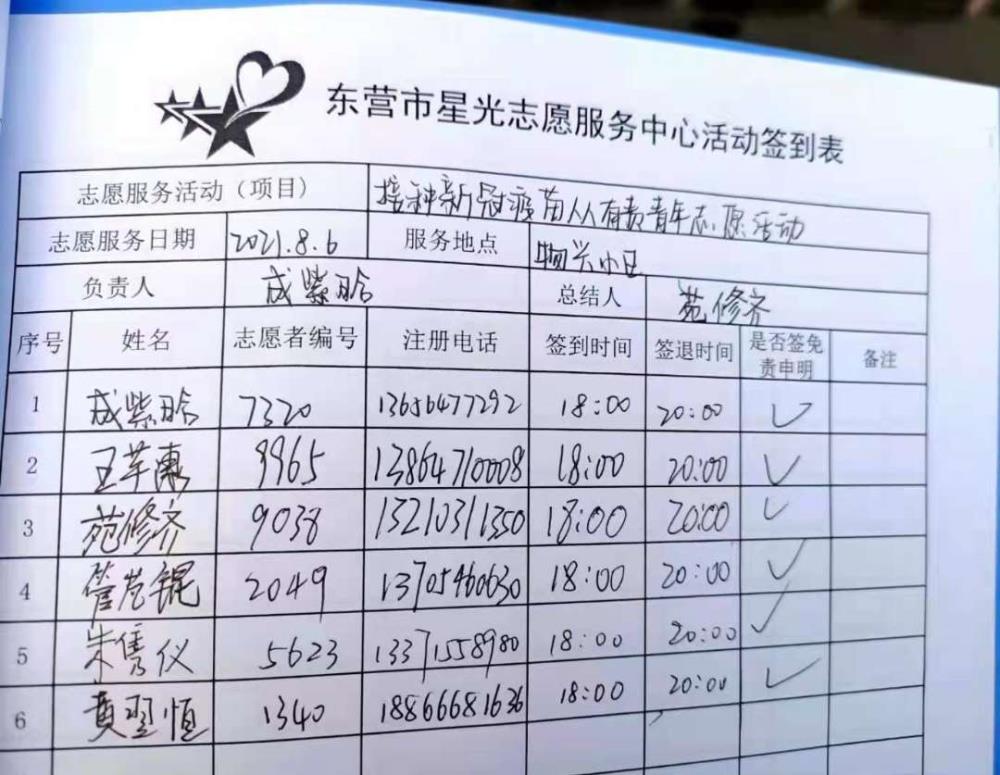 东营市星光志愿服务中心活动签到表
志愿服务活动（项目） 接种新冠疫苗人人有责青年志愿活动
志愿服务日期 2021.8.6 服务地点 物兴小区
负责人 成紫晗 总结人 苑修齐
序号 姓名 志愿者编号 注册电话 签到时间 签退时间 是否签免责申明 备注
1 成紫晗 7320 13656477292 18:00 20:00 ✓
2 王芊惠 9965 13864710008 18:00 20:00 ✓
3 苑修齐 9038 13210311350 18:00 20:00 ✓
4 管 锟 2049 13705460630 18:00 20:00 ✓
5 朱隽仪 5623 13371558980 18:00 20:00 ✓
6 黄翌恒 1340 18866681636 18:00 20:00 ✓